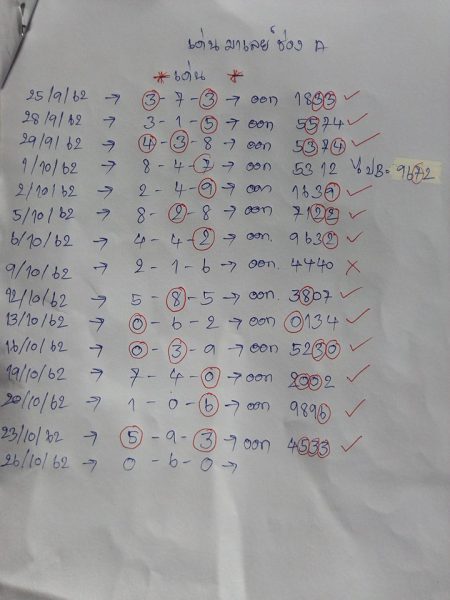 เด่น มาเลย์ ช่อง A
* เด่น *
25/9/62 → 3-7-3 → ออก 1833 ✓
28/9/62 → 3-1-5 → ออก 5574 ✓
29/9/62 → 4-3-8 → ออก 5374 ✓
1/10/62 → 8-4-7 → ออก 5312 ไปB= 9672
2/10/62 → 2-4-9 → ออก 1639 ✓
5/10/62 → 8-2-8 → ออก 7122 ✓
6/10/62 → 4-4-2 → ออก. 9632 ✓
9/10/62 → 2-1-6 → ออก. 4440 ×
12/10/62 → 5-8-5 → ออก. 3807 ✓
13/10/62 → 0-6-2 → ออก 0134 ✓
16/10/62 → 0-3-9 → ออก 5230 ✓
19/10/62 → 7-4-0 → ออก 2002 ✓
20/10/62 → 1-0-6 → ออก 9896 ✓
23/10/62 → 5-9-3 → ออก 4533 ✓
26/10/62 → 0-6-0 →